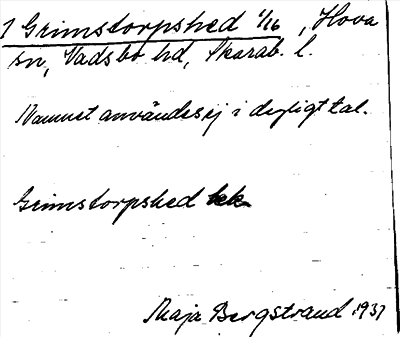 1 Grimstorpshed 1/16, Hova
sn, Vadsbo hd, Skarab. l.
Namnet användes ej i dagligt tal.
Grimstorpshed bek.
Maja Bergstrand 1937